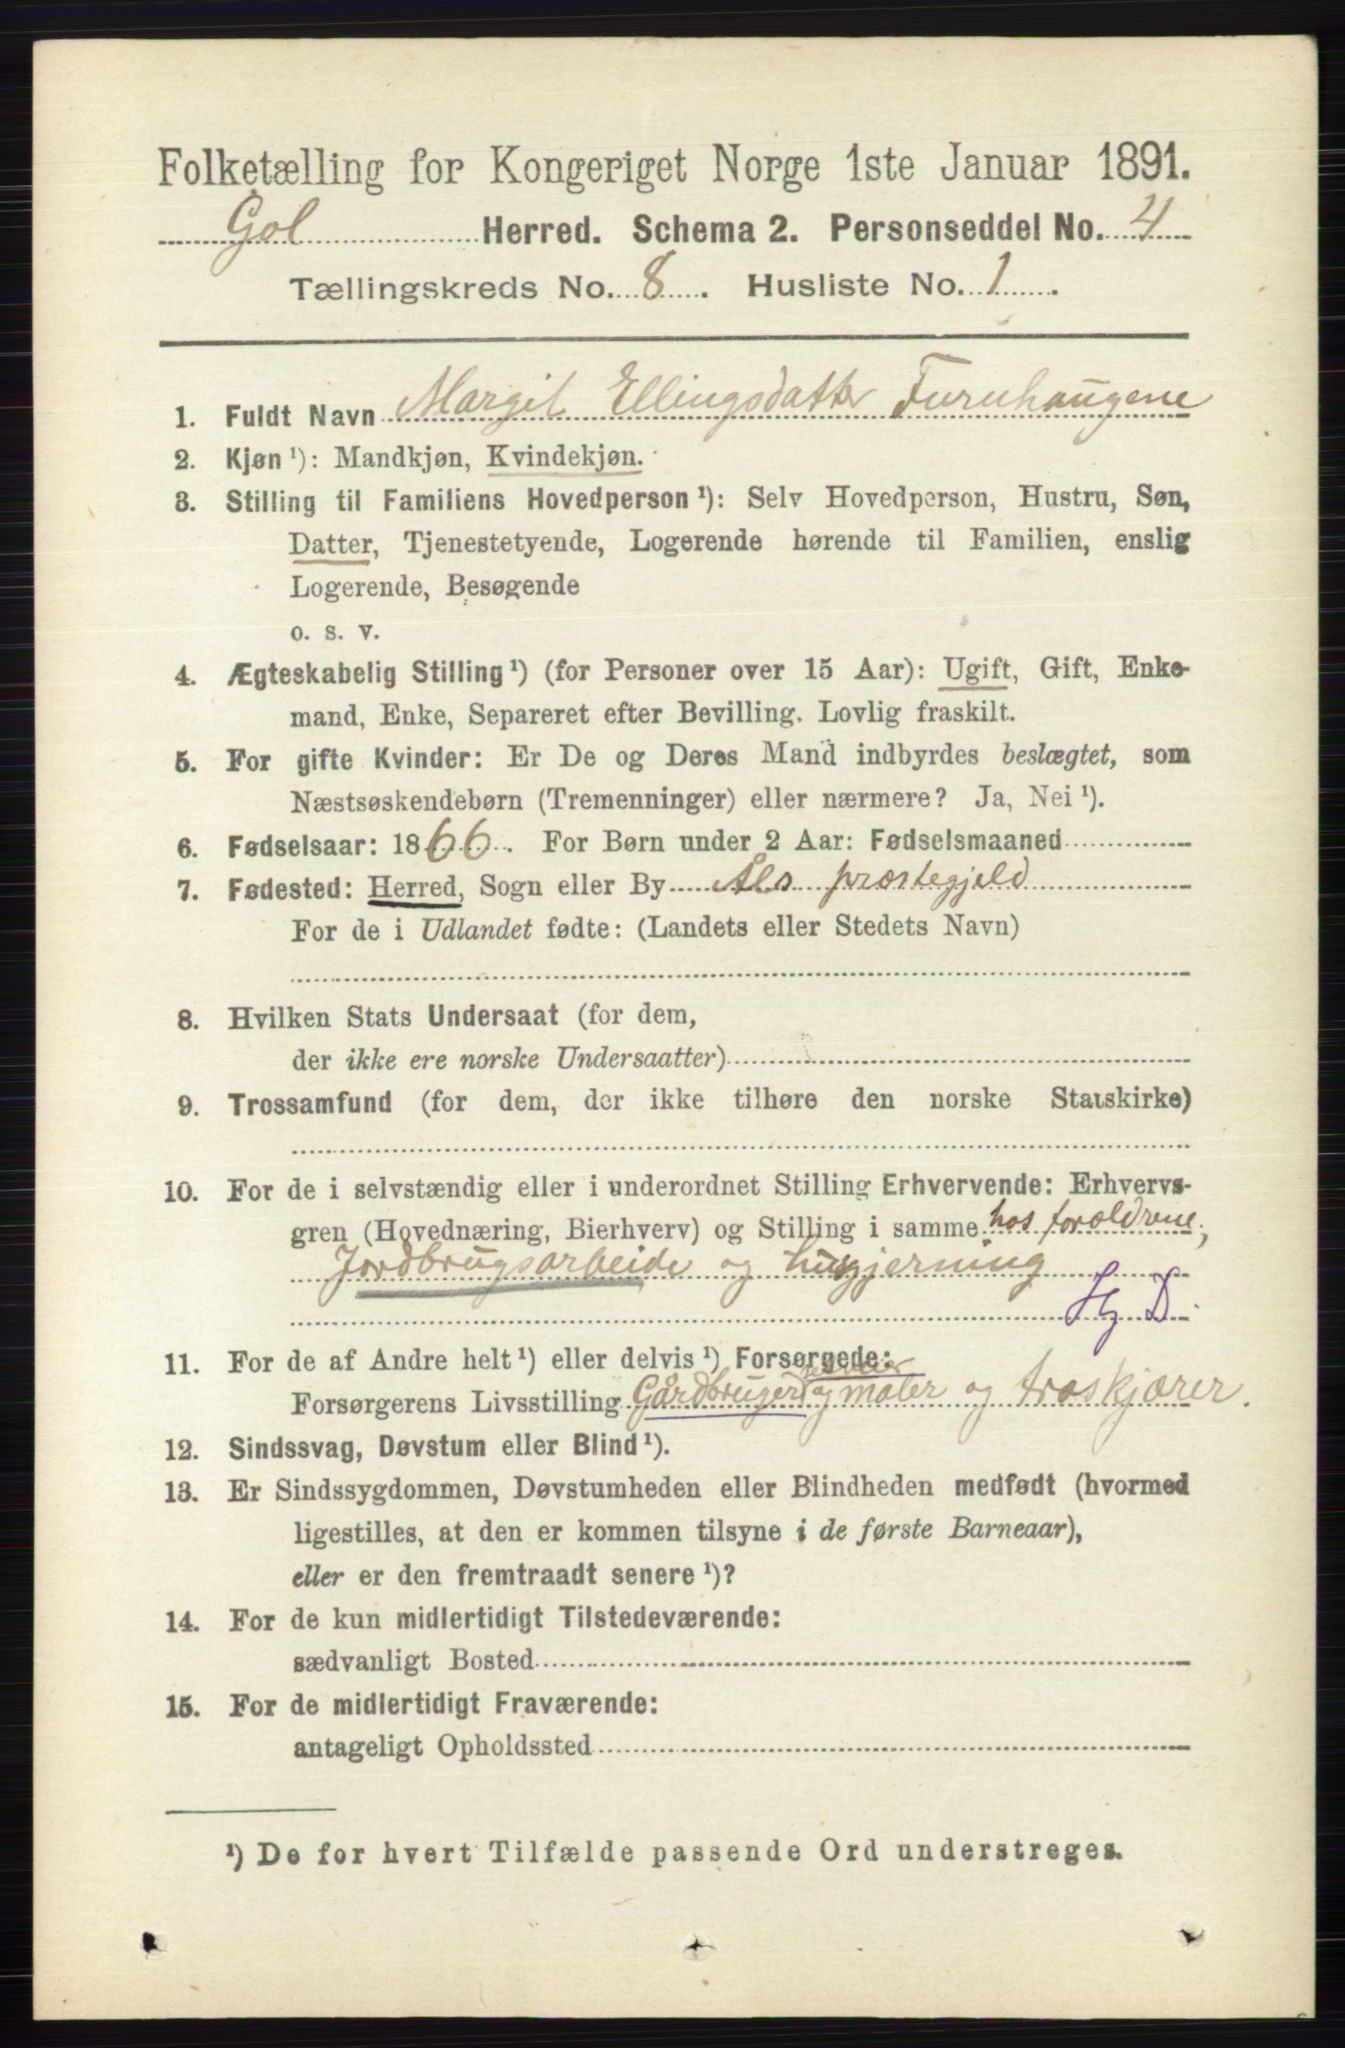 Folketælling for Kongeriget Norge 1ste Januar 1891.
Gol Herred. Schema 2. Personseddel No. 4
Tællingskreds No. 8. Husliste No. 1.
1. Fuldt Navn Margit Ellingsdatter Furuhaugene
2. Kjøn¹): Mandkjøn, Kvindekjøn.
3. Stilling til Familiens Hovedperson¹): Selv Hovedperson, Hustru, Søn,
Datter, Tjenestetyende, Logerende hørende til Familien, enslig
Logerende, Besøgende
o. s. v.
4. Ægteskabelig Stilling¹) (for Personer over 15 Aar): Ugift, Gift, Enke-
mand, Enke, Separeret efter Bevilling. Lovlig fraskilt.
5. For gifte Kvinder: Er De og Deres Mand indbyrdes beslægtet, som
Næstsøskendebørn (Tremenninger) eller nærmere? Ja, Nei¹).
6. Fødselsaar: 1866. For Børn under 2 Aar: Fødselsmaaned
7. Fødested: Herred, Sogn eller By Åls præstegjeld
For de i Udlandet fødte: (Landets eller Stedets Navn)
8. Hvilken Stats Undersaat (for dem,
der ikke ere norske Undersaatter)
9. Trossamfund (for dem, der ikke tilhøre den norske Statskirke)
10. For de i selvstændig eller i underordnet Stilling Erhvervende: Erhvervs-
gren (Hovednæring, Bierhverv) og Stilling i samme hos forældrene,
Jordbrugsarbeide og husgjerning
Hg D.
11. For de af Andre helt¹) eller delvis¹) Forsørgede:
Forsørgerens Livsstilling Gårdbruger og maler og træskjærer.
12. Sindssvag, Døvstum eller Blind¹).
13. Er Sindssygdommen, Døvstumheden eller Blindheden medfødt (hvormed
ligestilles, at den er kommen tilsyne i de første Barneaar),
eller er den fremtraadt senere¹)?
14. For de kun midlertidigt Tilstedeværende:
sædvanligt Bosted
15. For de midlertidigt Fraværende:
antageligt Opholdssted
¹) De for hvert Tilfælde passende Ord understreges.